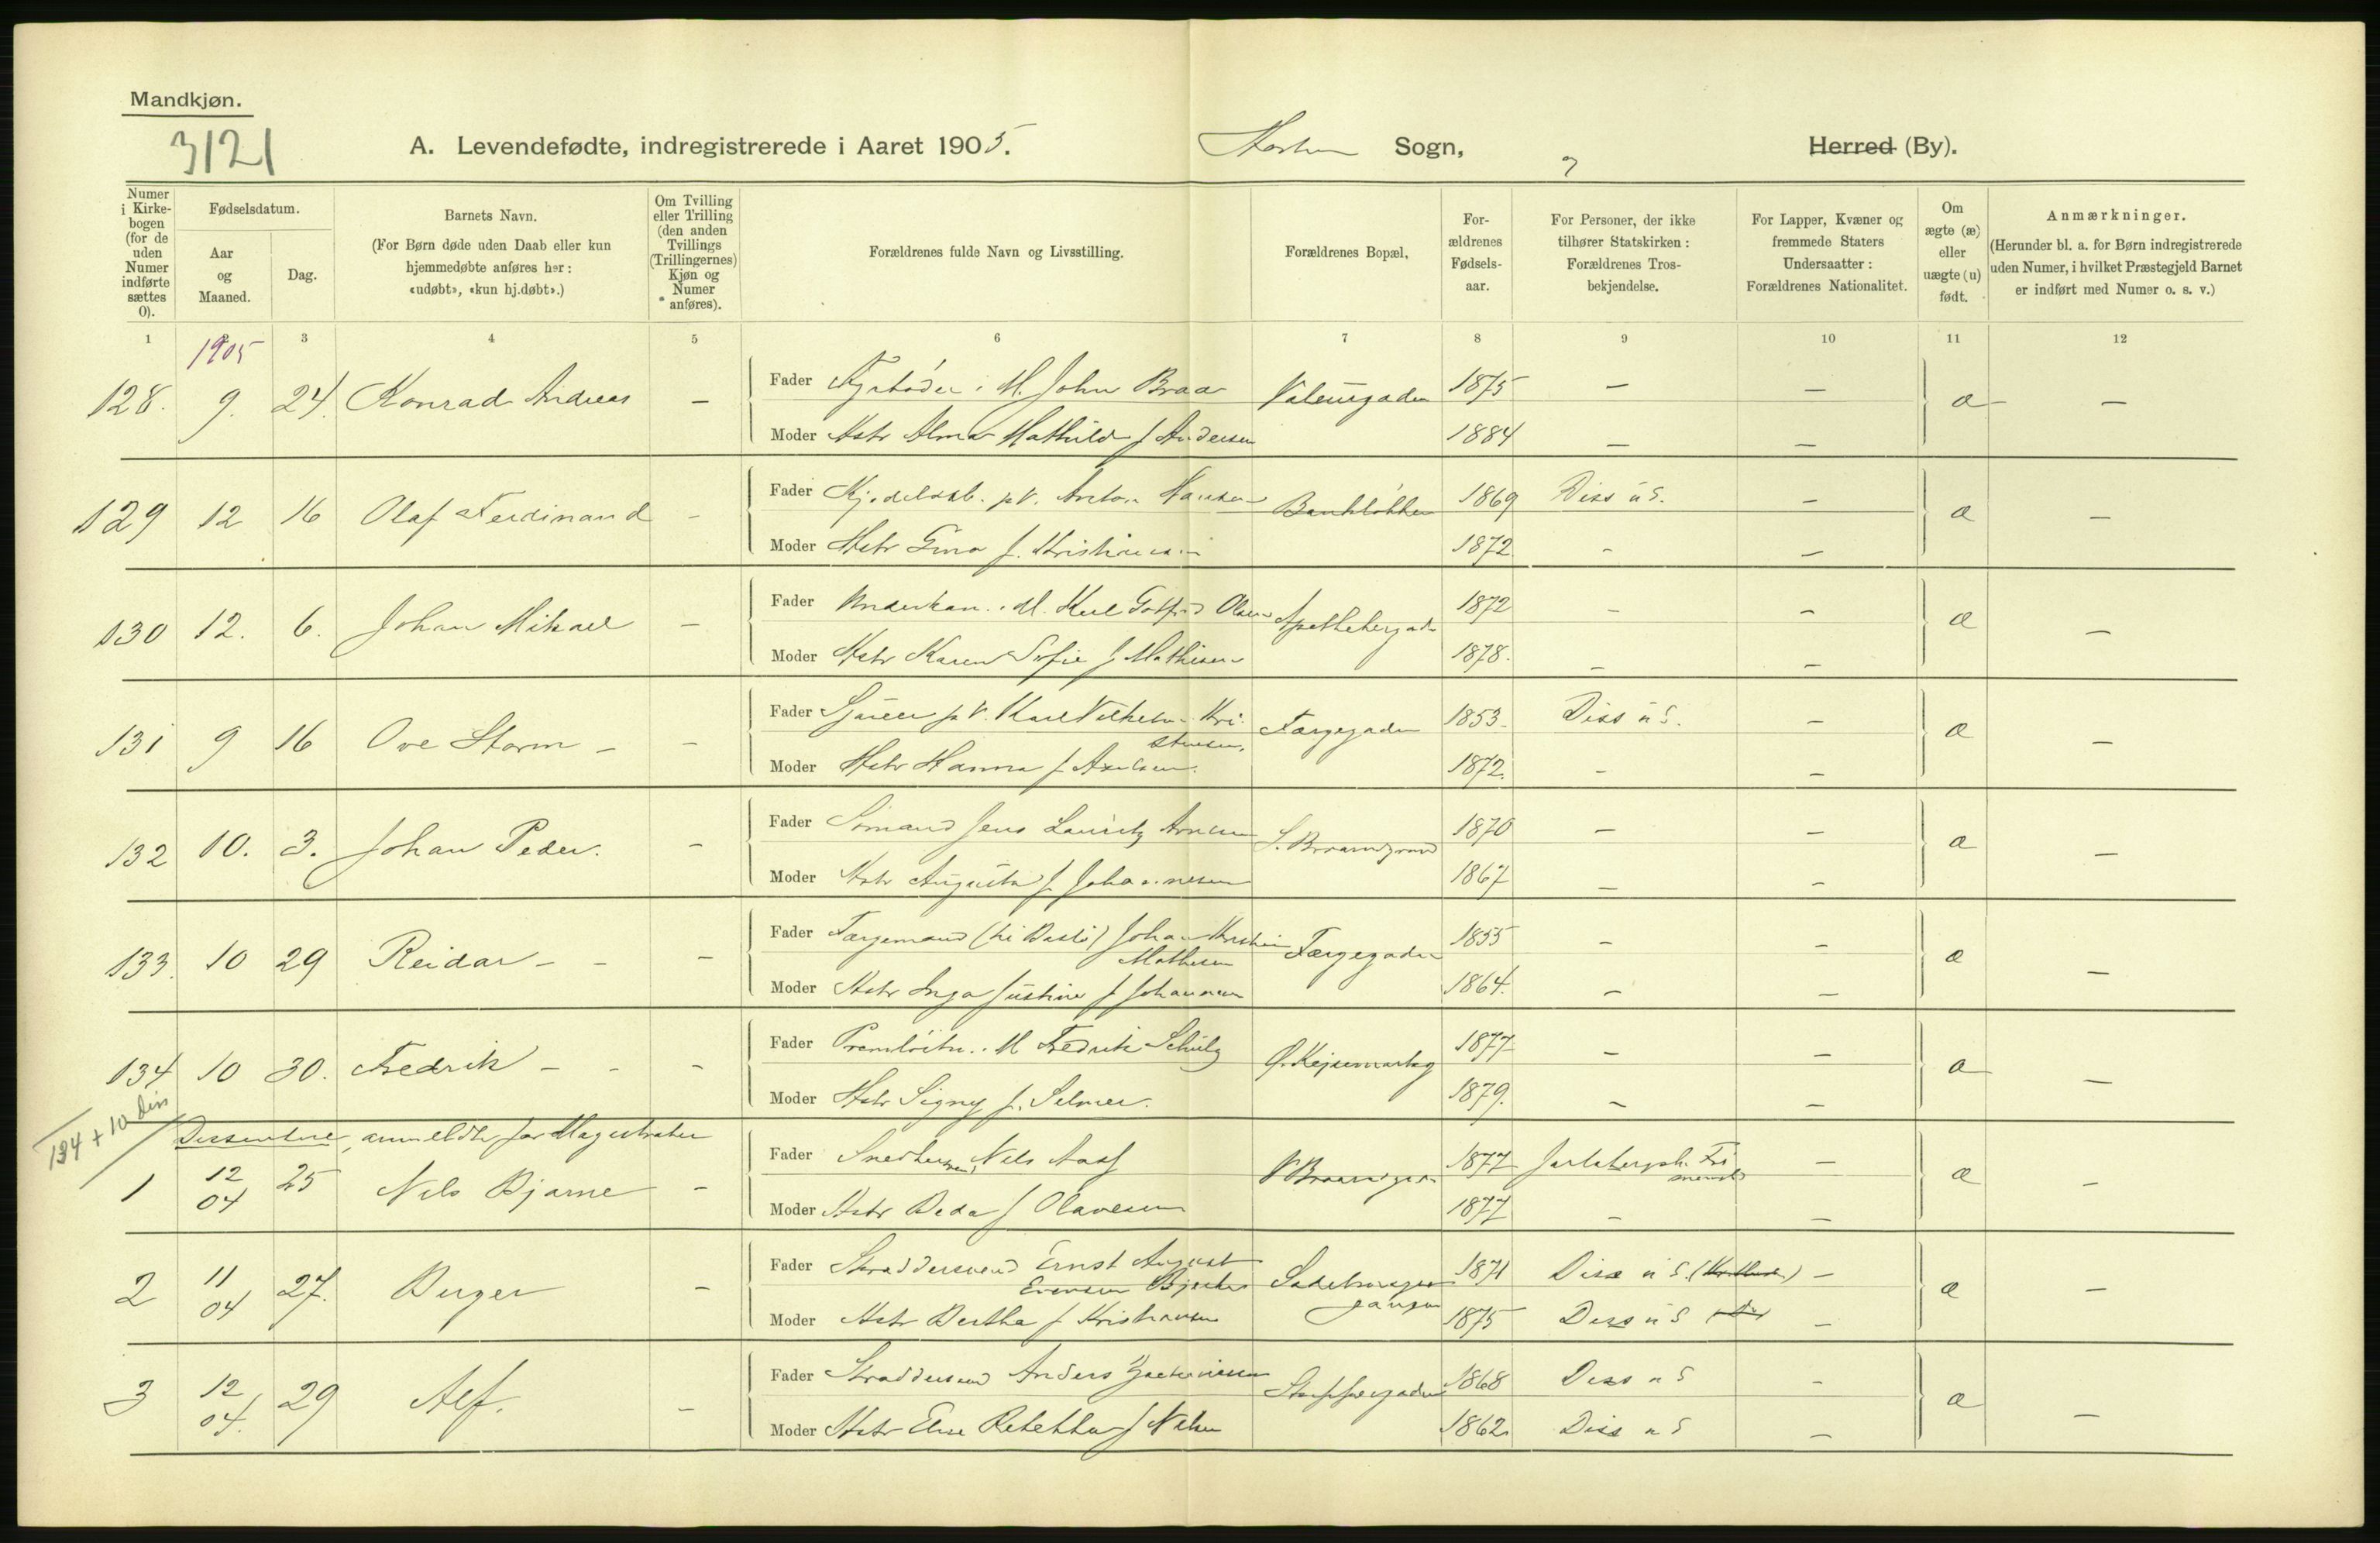 Mandkjøn.
3121
A. Levendefødte, indregistrerede i Aaret 1905. Horten Sogn, Herred (By).
Numer i Kirkebogen (for de uden Numer indførte sættes 0).
Fødselsdatum.
Aar og Maaned.
Dag.
Barnets Navn.
(For Børn døde uden Daab eller kun hjemmedøbte anføres her: «udøbt», «kun hj.døbt».)
Om Tvilling eller Trilling (den anden Tvillings (Trillingernes) Kjøn og Numer anføres).
Forældrenes fulde Navn og Livsstilling.
Forældrenes Bopæl.
Forældrenes Fødselsaar.
For Personer, der ikke tilhører Statskirken: Forældrenes Trosbekjendelse.
For Lapper, Kvæner og fremmede Staters Undersaatter: Forældrenes Nationalitet.
Om ægte (æ) eller uægte (u) født.
Anmærkninger.
(Herunder bl. a. for Børn indregistrerede uden Numer, i hvilket Præstegjeld Barnet er indført med Numer o. s. v.)
1 2 3 4 5 6 7 8 9 10 11 12
1905
128. 9. 24. Konrad Andreas – Fader Fyrbøder i M. John Braa 1875 – – æ –
Moder Hstr Alma Mathilde f Andersen 1884 – –
129 12 16 Olaf Ferdinand – Fader Anton Hansen Bankløkken 1869 Diss u S. – æ –
Moder Hstr f. Kristiansen 1872 – –
130 12. 6. Johan Mikael – Fader Underkan. i M. Karl Gotfred Olsen Apothekergaden 1872 – – æ –
Moder Hstr Karen Sofie f Mathisen 1878. – –
131 9 16 Ove Storm – – Fader Karl Vilhelm Kristensen. Færgegaden 1853 Diss u S. – æ –
Moder Hstr Hanna f Axelsen. 1872. – –
132 10. 3. Johan Peder. – Fader Sømand Jens Lauritz Arnesen 1870 – – æ –
Moder Hstr Augusta f Johannesen 1867 – –
133. 10 29 Reidar – – – Fader Færgemand (til Bastø) Johan Kristian Mathisen Færgegaden 1855 – – æ –
Moder Hstr Inga Justine f Johannesen 1864. – –
134 10 30. Fredrik – – – Fader Premløitn. i M Fredrik Schulz 1877 – – æ –
Moder Hstr Signy f. Selmer. 1879. – –
134 + 10 diss
Dissentere, anmeldte for Magistraten
1 12 04 25 Nils Bjarne – Fader Snedkersvend Nils Aass 1877 Jarlsbergsk. Frimenih – æ –
Moder Hstr f Olavesen 1877 – –
2 11 04 27. Birger – Fader Skræddersvend Ernst August Evensen 1871 Diss u S. – æ –
Moder Hstr Bertha f Kristiansen 1875 Diss u S –
3 12 04. 29 Alf. – Fader Skræddersvend Anders Zachariassen 1868 Diss u S – æ –
Moder Hstr Else Rebekka f Nilsen 1862 Diss u S –